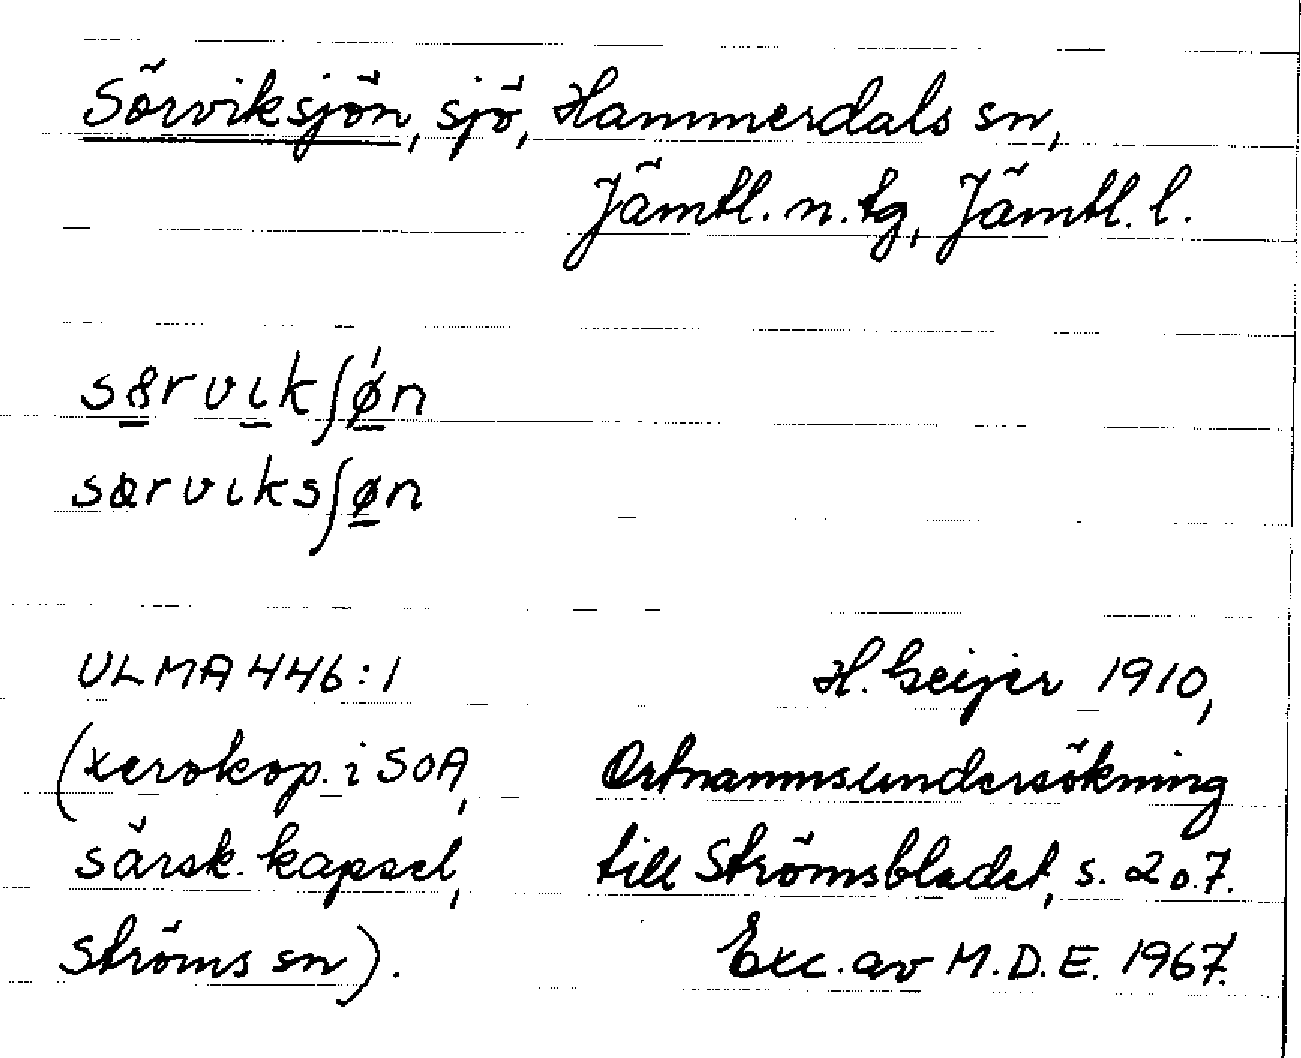 Sörviksjön, sjö, Hammerdals sn,
Jämtl. n. tg, Jämtl. l.
s8rvιkʃǿn
sarvιksʃøn
ULMA 446:1
(xerokop. i SOA,
särsk. kapsel,
Ströms sn).
H. Geijer 1910,
Ortnamnsundersökning
till Strömsbladet, s. 2 o. 7.
Exc. av M.D.E. 1967.